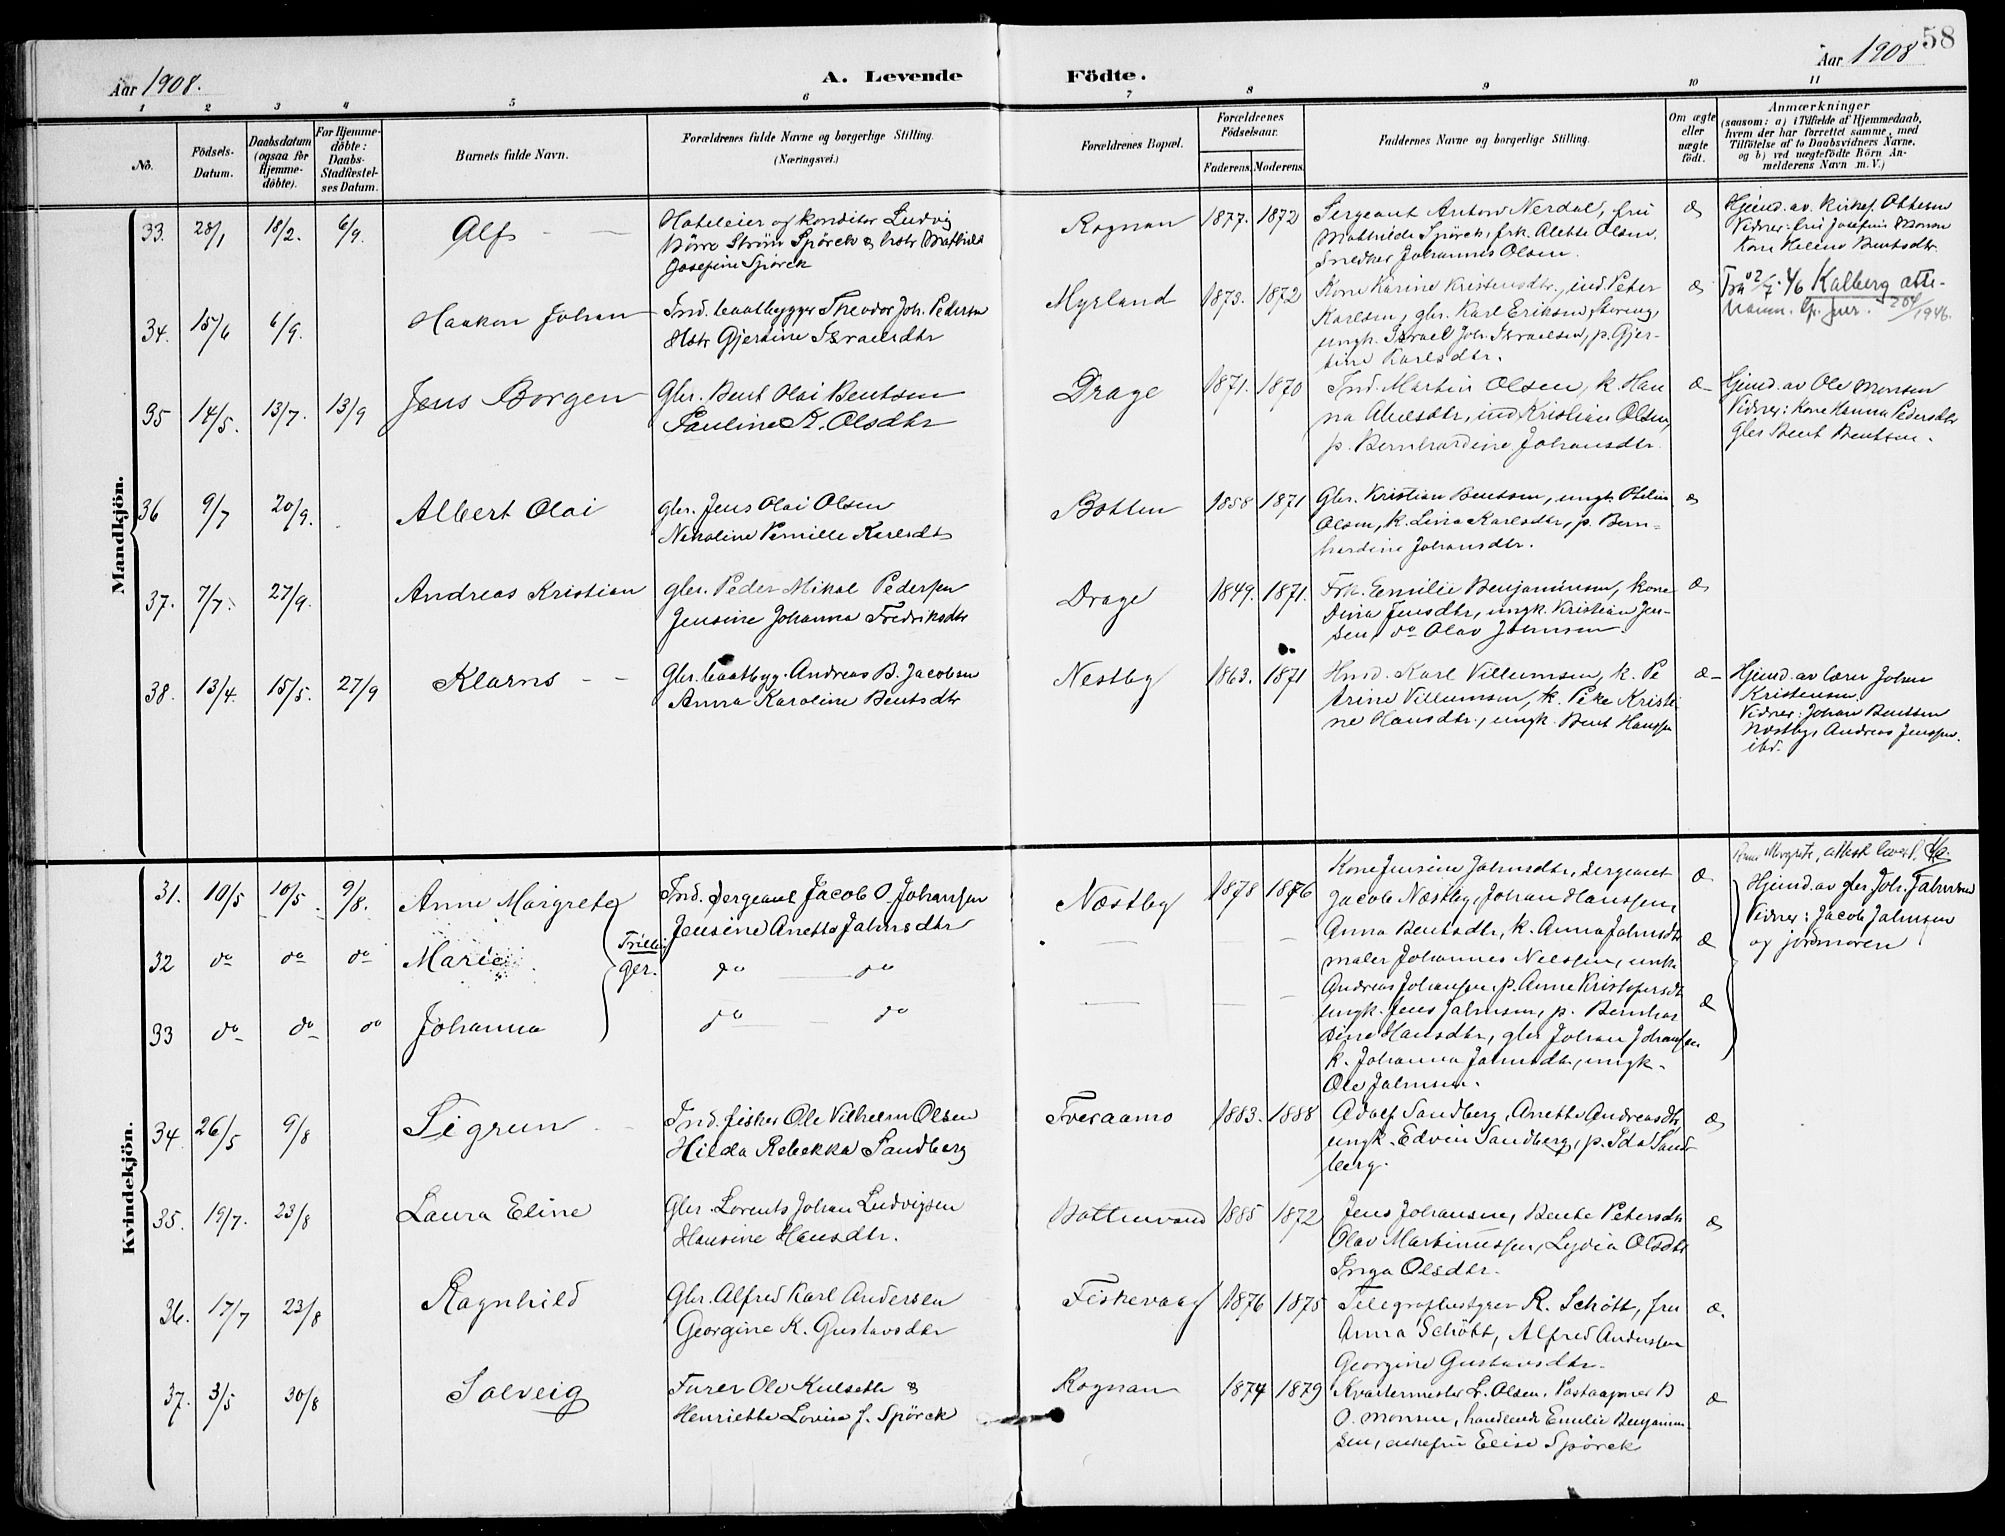 58
Aar 1908.
A. Levende
Födte.
Aar 1908
1 2 3 4 5 6 7 8 9 10 11
No.
Födsels-Datum.
Daabsdatum (ogsaa for Hjemme-döbte).
For Hjemme-döbte: Daabs-Stadfæstel-ses Datum.
Barnets fulde Navn.
Forældrenes fulde Navne og borgerlige Stilling.
(Næringsvei.)
Forældrenes Bopæl.
Forældrenes Födselsaar.
Faderens. Moderens.
Faddernes Navne og borgerlige Stilling.
Om ægte eller uægte födt.
Anmærkninger
(saasom: a) i Tilfælde af Hjemmedaab,
hvem der har forrettet samme, med
Tilföielse af to Daabsvidners Navne,
og b) ved uægtefödte Börn An-
melderens Navn m. V.)
Mandkjön.
33. 28/1 18/2. 6/9. Alf
Hoteleier og konditor Ludvig
Börre Ström Spörck & hstr Mathilde
Josefine Spörck
Rognan 1877. 1872
Sergeant Anton Nerdal, fru
Mathilde Spörck, frk. Alette Olsen,
Snedker Johannes Olsen.
æ
Hjemd. av. Kirkes. Ottesen
Vidner: fru Josefine Monsen
Kone Helene Bentsdtr
34. 15/6 6/9. Haakon Johan
Ind. baatbygger Theodor Joh. Pedersen
Hstr Gjertine Israelsdtr
Myrland 1873. 1872
Kone Karine Kristensdtr., ind. Peter
Karlsen, gbr. Karl Eriksen Storeng,
ungk. Israel Joh. Israelsen, p. Gjer-
tine Karlsdtr.
æ
Kalberg
1946.
35 14/5. 13/7. 13/9 Jens Borgen
Gbr. Bent Olai Bentsen
Pauline K. Olsdtr
Drage 1871. 1870
Ind. Martin Olsen, k. Han
na Abelsdtr, ind Kristian Olsen,
p. Bernhardine Johansdtr.
æ
Hjemd. av Ole Monsen
Vidner: Kone Hanna Pedersdtr
Gbr Bent Bentsen.
36 9/7 20/9. Albert Olai
gbr. Jens Olai Olsen
Nikoline Pernille Karlsdtr
Botten 1858 1871
Gbr. Kristian Bentsen, ungk.
Olsen, k. Lina Karlsdtr, p. Bern-
hardine Johansdtr.
æ
37. 7/7. 27/9. Andreas Kristian
gbr. Peder Mikal Pedersen
Jensine Johanna Fredriksdtr
Drage 1849. 1871.
Frk. Emilie Benjaminsen, kone
Dina Jensdtr, ungk. Kristian Jen-
sen, do Olav Johnsen.
æ
38. 13/4. 15/5. 27/9 Klarns
Gbr. baatbyg. Andreas B. Jacobsen
Anna Karoline Bentsdtr
Nestby 1863. 1871
Hmd. Karl Villumsen, k. Pe
trine Villumsen, k. Kristi
ne Hansdtr., ungk. Bent Hanssen
æ
Hjemd. av lærer Johan
Kristensen.
Vidner: Johan Bentsen
Næstby, Andreas Jenssen
ibd.
Kvindekjön.
31. 10/5 10/5. 9/8. Anne Margrete
Ind. Sergeant Jacob O. Johanssen
Jensine Anette Jahnsdtr
Næstby 1878 1876
Kone Jensine Jahnsdtr, Sergeant
Jacob Næstby, Johan Hanssen,
Anna Bentsdtr, k. Anna Jahnsdtr
maler Johannes Nelssen, ungk
Andreas Johanssen, p. Anne Kristofersdtr
ungk. Jens Jahnsen, p. Bernhar
dine Hansdtr, gbr Johan Johanssen
k. Johanna Jahnsdtr, ungk.
Ole Jahnsen.
æ
Hjemd. av gbr Joh. Jahnsen
Vidner: Jacob Jahnsen
og jordmoren
32 do do do Marie
Trillin
ger.
do do
æ
33 do do do Johanna
do do
æ
34. 26/5 9/8 Sigrun
Ind. fisker Ole Vilhelm Olsen
Hilda Rebekka Sandberg
Tveraamo 1883. 1888
Adolf Sandberg, Anette Andreasdtr,
ungk. Edvin Sandberg, p. Ida Sand-
berg.
æ
35. 19/7. 23/8 Laura Eline
Gbr. Lorents Johan Ludvigsen
Hansine Hansdtr.
Bottenvand 1885 1872
Jens Johansen, Bente Petersdtr
Olav Martinussen, Lydia Olsdtr
Inga Olsdtr.
æ
36. 17/7 23/8 Ragnhild
Gbr. Alfred Karl Andersen
Georgine K. Gustavsdtr
Fiskevaag 1876 1875
Telegrafbestyrer R. Schött, fru
Anna Schött, Alfred Anderssen
Georgine Gustavsdtr.
æ.
37. 3/5 30/8 Solveig
Furer Olv Kulseth &
Henriette Lovise J. Spörck
Rognan 1874 1879
Kvartermester L. Olsen, Postaapner B
O. Monsen, handlende Emilie Benjamin
sen, enkefru Elise Spörck
æ